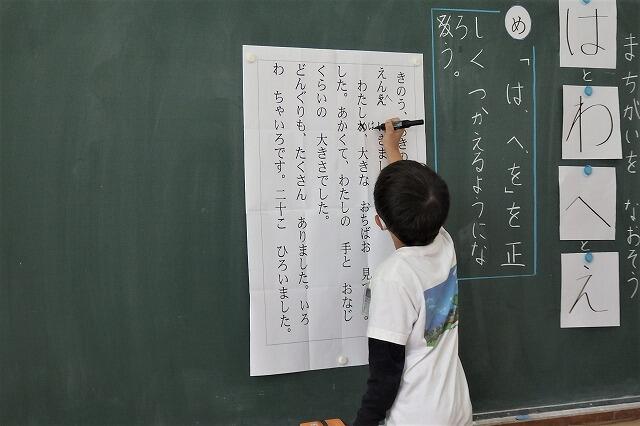 まちがいを なおそう
は
と
わ
へ
と
え
め
「は、へ、を」を正
しくつかえるようにな
ろう。
きのう、
えんえ きまし
へ
わたしわ、大きな おちばお 見
は
した。あかくて、わたしの 手と おなじ
くらいの 大きさでした。
どんぐりも、たくさん ありました。いろ
わ ちゃいろです。二十こ ひろいました。